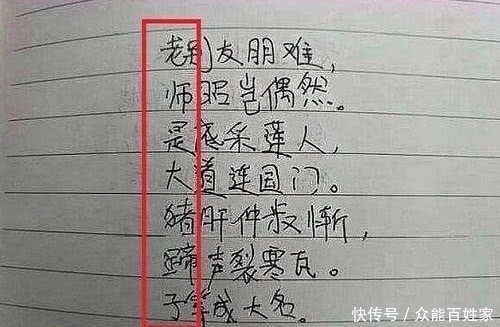 老到友朋难，
师昭岂偶然。
是底采莲人，
大道连国门。
猪肝仲叔惭，
蹄声裂寒瓦。
子等成大名。
快传号／众能百姓家